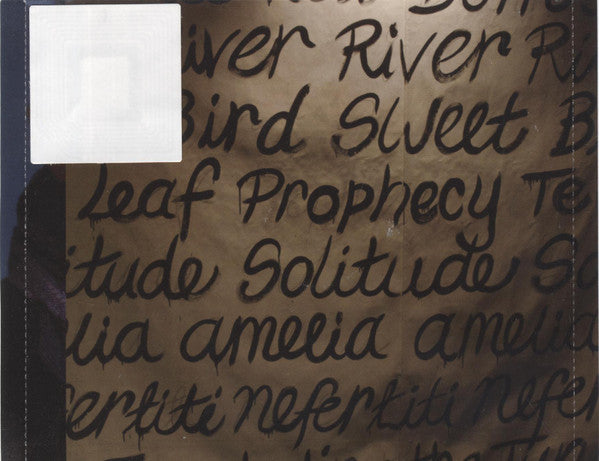 Now
iver River Ri
Bird Sweet B
Leaf Prophecy Te
itude Solitude So
lia amelia amelia
fertiti nefertiti nefer
the